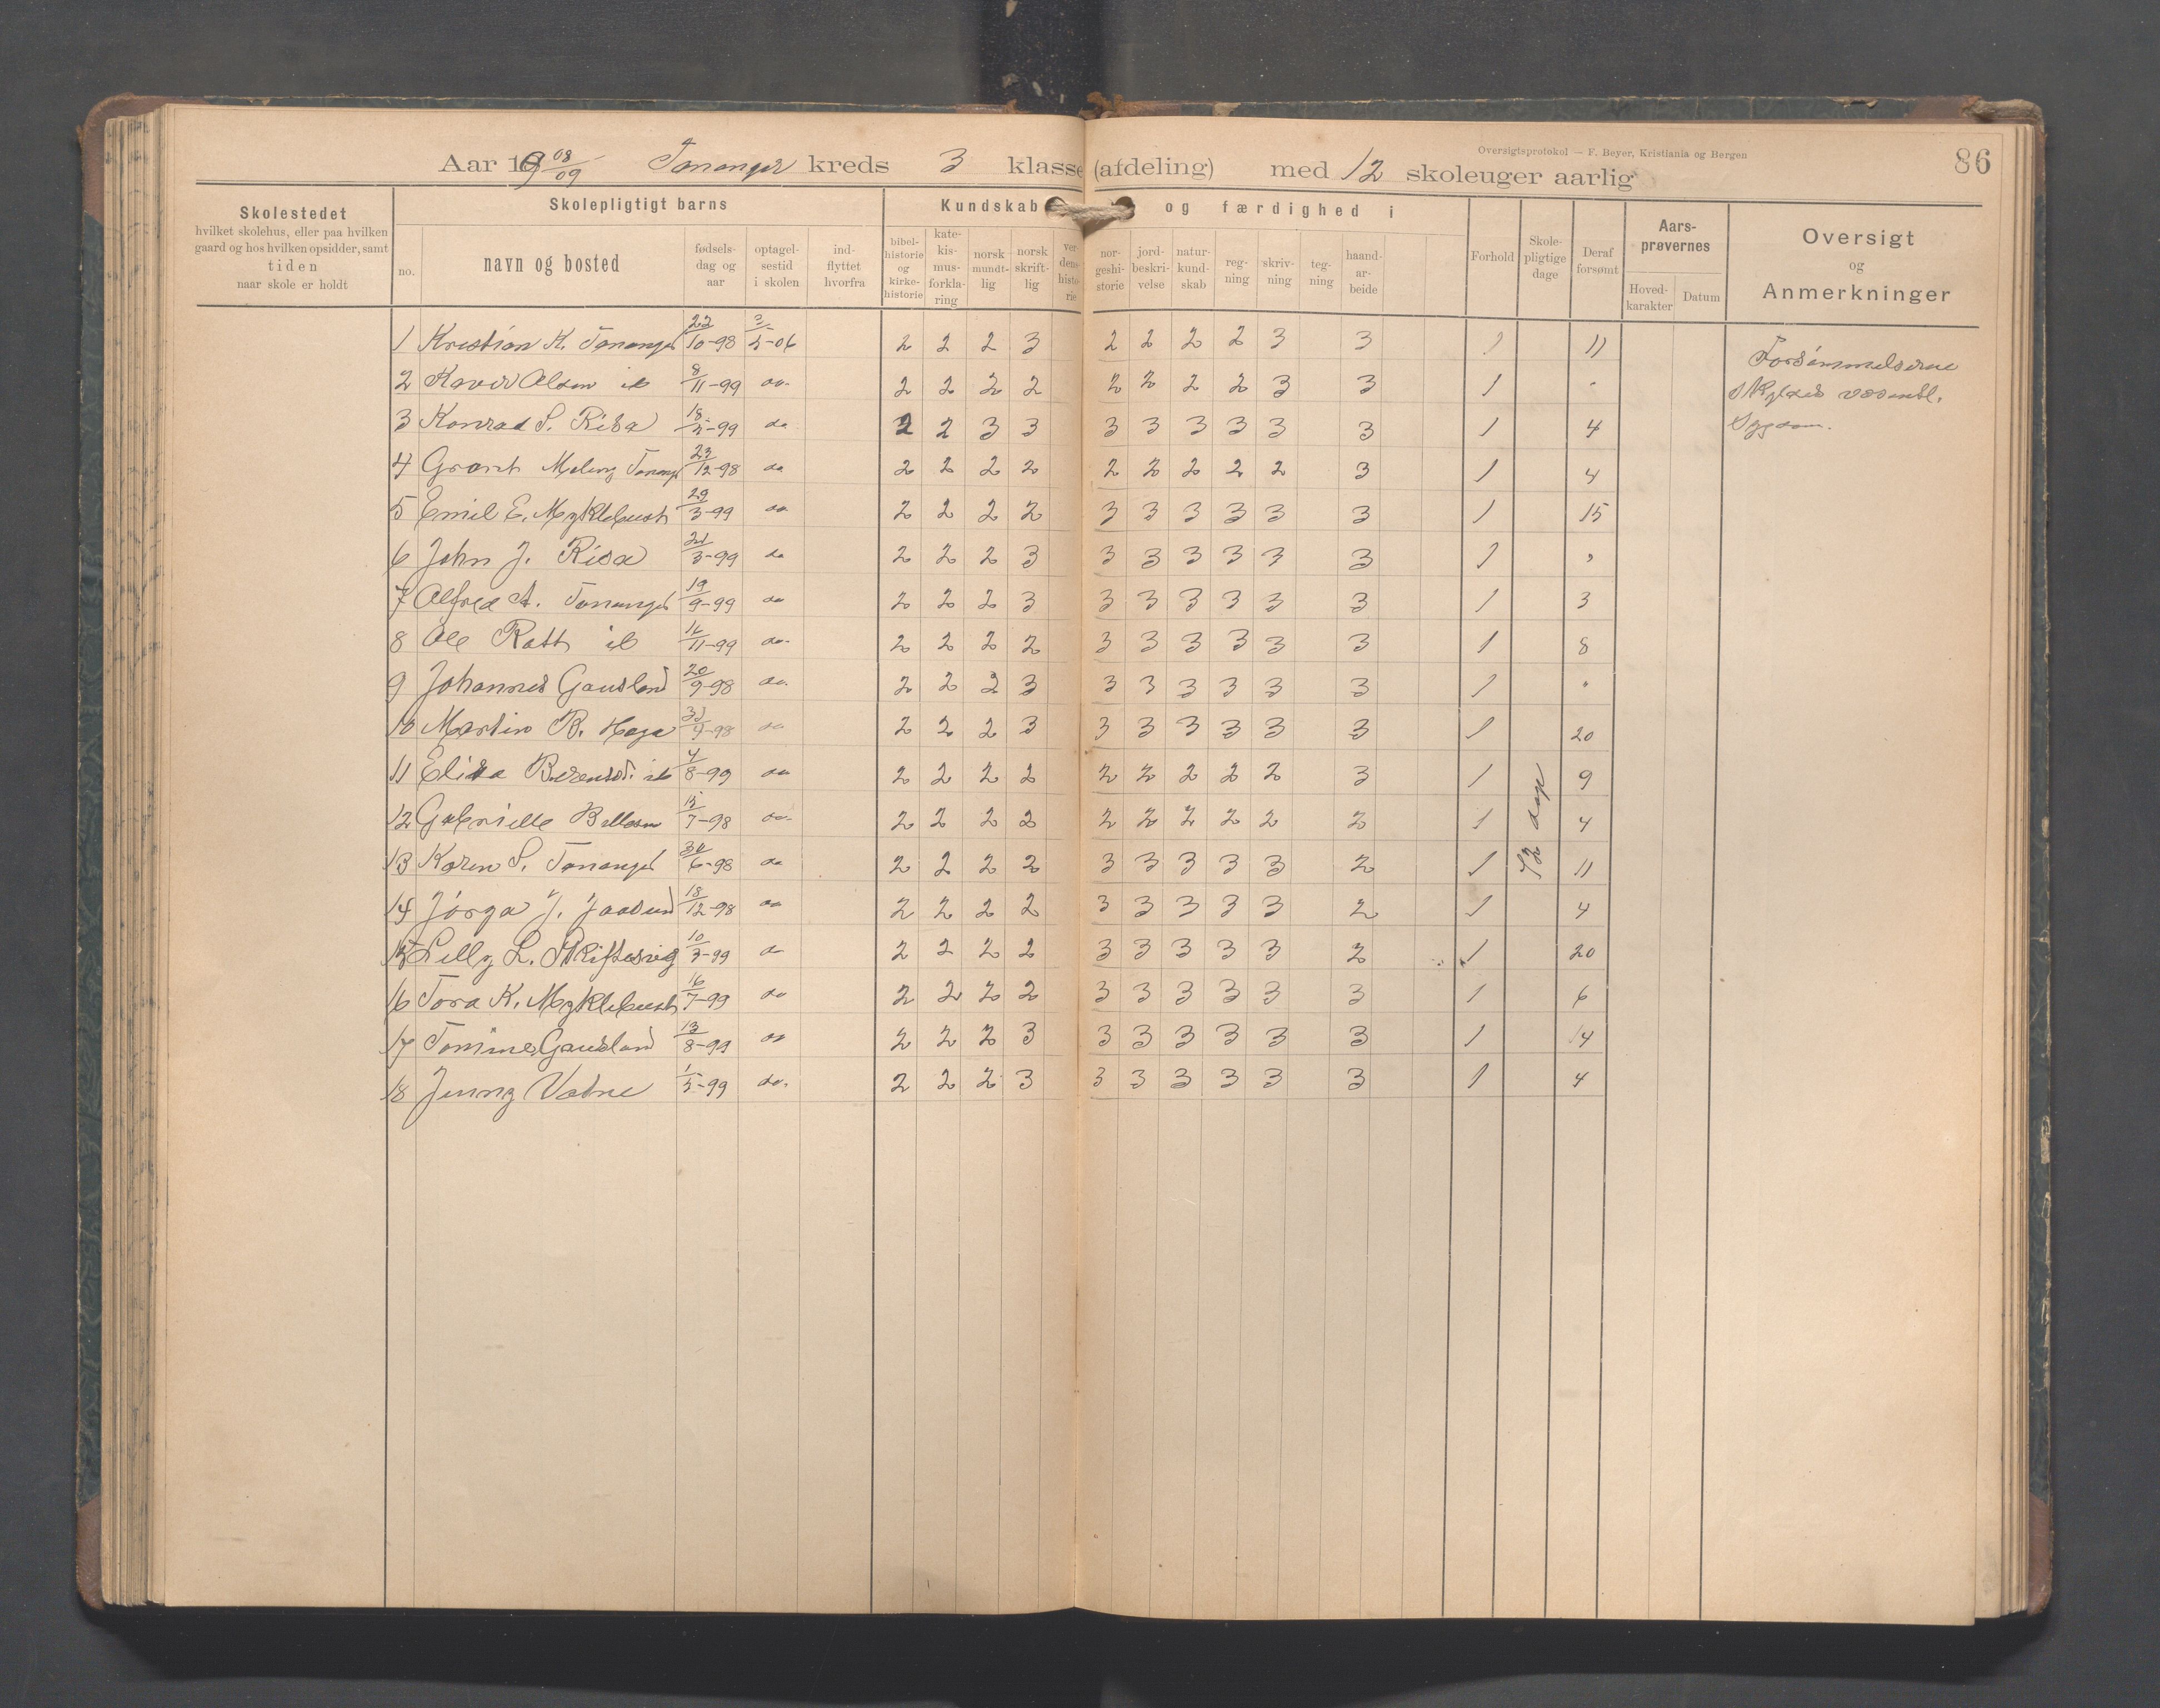 Oversigtsprotokol — F. Beyer, Kristiania og Bergen
86
Aar 19 08/09 Tananger kreds 3 klasse (afdeling) med 12 skoleuger aarlig
Skolestedet hvilket skolehus, eller paa hvilken gaard og hos hvilken opsidder, samt tiden naar skole er holdt
Skolepligtigt barns
no. navn og bosted fødsels-dag og aar optagel-sestid i skolen ind-flyttet hvorfra
Kundskab og færdighed i
bibel-historie og kirke-historie kate-kis-mus-forkla-ring norsk mundt-lig norsk skrift-lig ver-dens-histo-rie nor-geshi-storie jord-beskri-velse natur-kund-skab reg-ning skriv-ning teg-ning haand-ar-beide
Forhold Skole-pligtige dage Deraf forsømt
Aars-prøvernes Hoved-karakter Datum
Oversigt og Anmerkninger
1 Kristian K. Tananger 22/10-98 2/5-06 2 2 2 3 2 2 2 2 3 3 1 11
2 Olsen ib 8/11-99 do. 2 2 2 2 2 2 2 2 3 3 1 "
3 Konrad S. Risa 18/5-99 do 2 2 3 3 3 3 3 3 3 3 1 4
4 Grant Meling Tananger 23/12-98 do 2 2 2 2 2 2 2 2 2 3 1 4
5 Emil E. Myklebust 29/3-99 do 2 2 2 2 3 3 3 3 3 3 1 15
6 John J. Risa 21/3-99 do 2 2 2 3 3 3 3 3 3 3 1 "
7 Alfred A. Tananger 19/9-99 do 2 2 2 3 3 3 3 3 3 3 1 3
8 Ole Rott ib 11-99 do. 2 2 2 2 3 3 3 3 3 3 1 8
9 Johannes Gausland 20/9-98 do. 2 2 2 3 3 3 3 3 3 3 1 "
10 Martin B. Haga 9-98 do 2 2 2 3 3 3 3 3 3 3 1 20
11 Elisa Berentsd. ib 4/8-99 do 2 2 2 2 2 2 2 2 2 3 1 9
12 Gabrielle 15/7-98 do. 2 2 2 2 2 2 2 2 2 2 1 4
13 Karen S. Tananger 30/6-98 do 2 2 2 2 3 3 3 3 3 2 1 11
14 Jørga J. Jaasund 18/12-98 do 2 2 2 2 3 3 3 3 3 2 1 4
15 Lilly L. Skiftesvig 10/3-99 do 2 2 2 2 3 3 3 3 3 2 1 20
16 Tora K. Myklebust 16/7-99 do 2 2 2 2 3 3 3 3 3 3 1 6
17 Tomine Gausland 13/8-99 do 2 2 2 3 3 3 3 3 3 3 1 14
18 Jenny Vatne 1/5-99 do. 2 2 2 3 3 3 3 3 3 3 1 4
72 dage
Forsømmelserne
skyldes væsentl.
Sygdom.